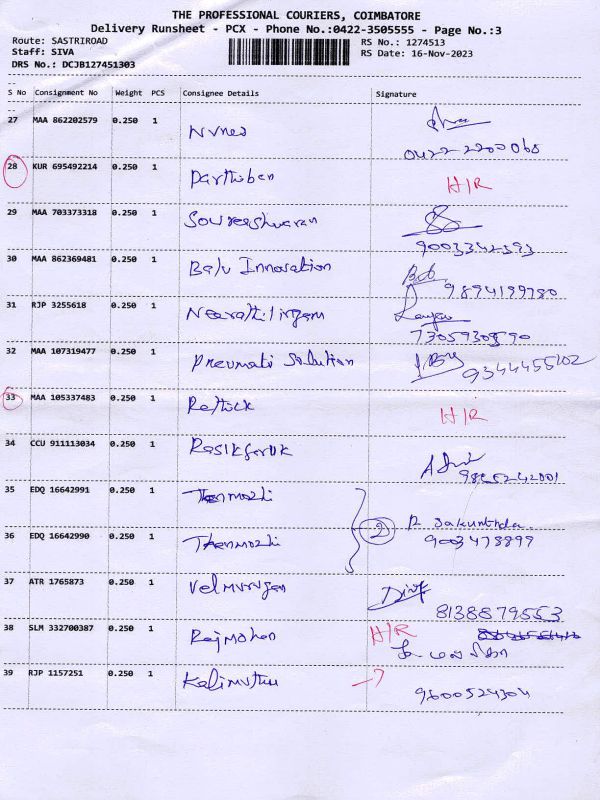 THE PROFESSIONAL COURIERS, COIMBATORE
Delivery Runsheet - PCX - Phone No.:0422-3505555 - Page No.:3
Route: SASTRIROAD
RS No.: 1274513
Staff: SIVA
RS Date: 16-Nov-2023
DRS No.: DCJB127451303
S No Consignment No Weight PCS Consignee Details Signature
27 MAA 862202579 0.250 1
0422 2200068
28 KUR 695492214 0.250 1 Parthiben H/R
29 MAA 703373318 0.250 1 Sowreeshwaran
9003342393
30 MAA 862369481 0.250 1 Balu Innovation
9894199780
31 RJP 3255618 0.250 1 Neerathilingam
7305930590
32 MAA 107319477 0.250 1 Pneumati Solution 9344455102
33 MAA 105337483 0.250 1 H/R
34 CCU 911113034 0.250 1 Rasikfaruk
35 EDQ 16642991 0.250 1 Thenmozhi
2 R Sakunthda
36 EDQ 16642990 0.250 1 Thenmozhi 9003478899
37 ATR 1765873 0.250 1 Velmurugan
8138879553
38 SLM 332700387 0.250 1 Rajmohan H/R
39 RJP 1157251 0.250 1 Kalimuthu
9600524304